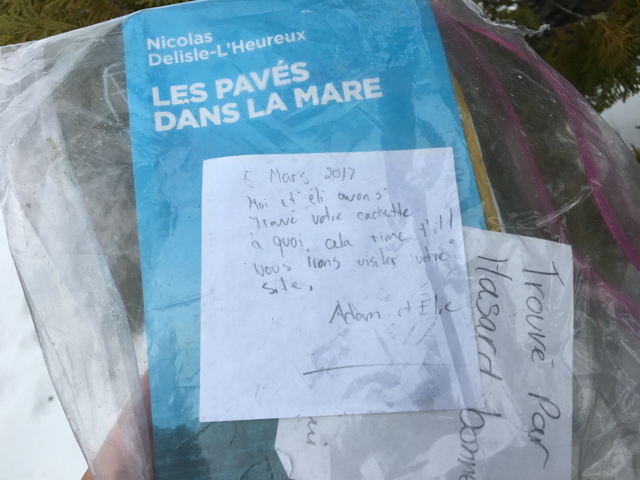 Nicolas
Delisle-L'Heureux
LES PAVÉS
DANS LA MARE
5 Mars 2017
Moi et éli avons
Trouvé votre cachette
à quoi cela rime t'il!!
Nous irons visiter votre
site.
Adam et Élie
Trouvé Par
Hasard bonne